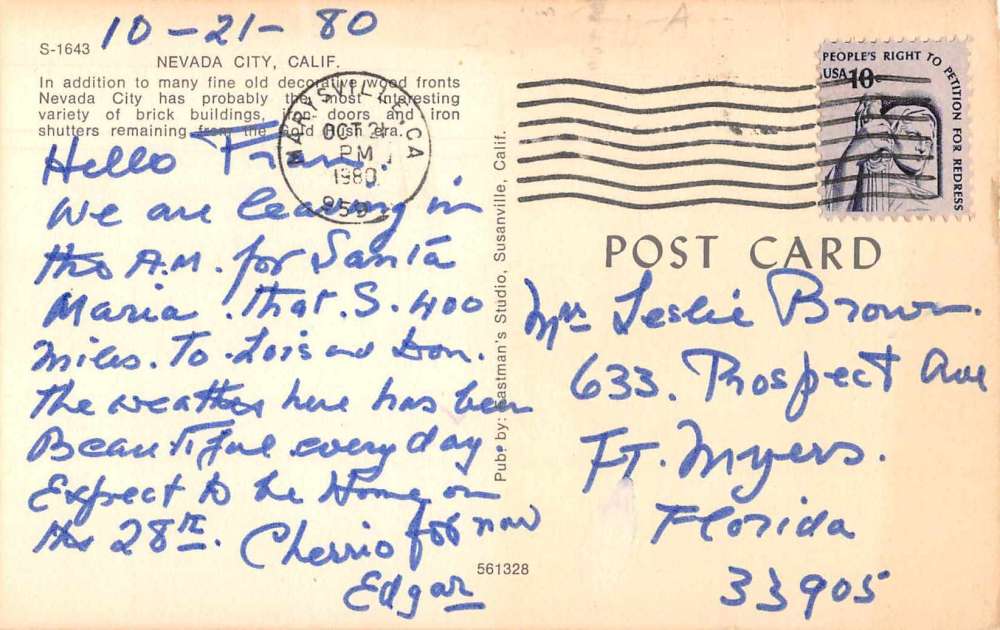 10-21-80
S-1643
NEVADA CITY, CALIF.
In addition to many fine old decorative wood fronts
Nevada City has probably the most interesting
variety of brick buildings, doors and iron
shutters remaining from the gold rush era.
MARYSVILLE, CA
OCT 21
PM
1980
959
Hello Fran.
We are leaving in
the A.M. for Santa
Maria. that.S. 400
miles. To Lois and Don.
The weather here has been
Beautiful every day.
Expect to be Home on
the 28th. Cherrio for now
Edgar
Pub. by: Eastman's Studio, Susanville, Calif.
561328
PEOPLE'S RIGHT TO PETITION FOR REDRESS
USA 10
POST CARD
Mrs Leslie Brown.
633. Prospect Ave
FT. Myers.
Florida
33905